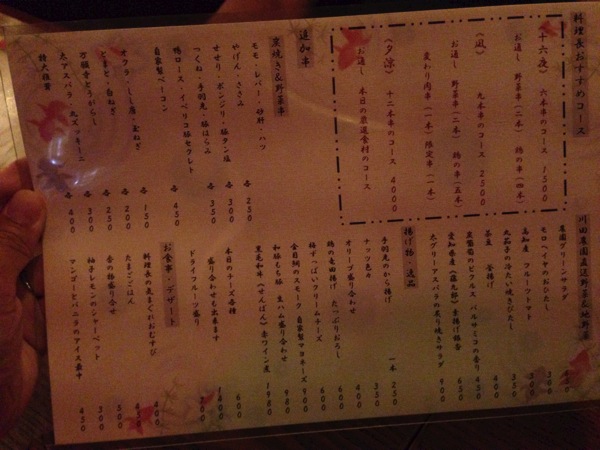 料理長おすすめコース
《十六夜》 六本串のコース 1500
お通し 野菜串(二本) 鶏の串(四本)
《凪》 九本串のコース 2500
お通し 野菜串(二本) 鶏の串(五本)
変わり肉串(一本) 限定串(一本)
《夕涼》 十二本串のコース 4000
お通し 本日の厳選食材のコース
追加串
炭焼き&野菜串
モモ・レバー・砂肝・ハツ
やげん・ささみ 各 250
せせり・ボンジリ・豚タン塩
つくね・手羽先・豚はらみ 各 350
鴨ロース・イベリコ豚セクレト
自家製ベーコン 各 450
オクラ・しし唐・玉ねぎ 各 150
とまと・白ねぎ 各 200
万願寺とうがらし 各 250
特大椎茸 各 300
大アスパラ・丸ズッキーニ 各 400
川田農園直送野菜&地野菜
農園グリーンサラダ
モロヘイヤのおひたし 300
高知産 フルーツトマト
丸茄子の冷たい焼きびたし
茶豆 釜揚げ 400
農園筍のピクルス バルサミコの香り 450
愛知県産(藤九郎)素揚げ銀杏 650
太ブリーアスパラの炙り焼きサラダ 900
揚げ物・逸品
手羽先のから揚げ 一本 250
ナッツ色々 350
オリーブ盛り合わせ 400
鶏の竜田揚げ たっぷりおろし 600
梅ずっぱいクリームチーズ 600
金目鯛のスモーク 自家製マヨネーズ 900
和豚もち豚 生ハム盛り合わせ 980
黒毛和牛(せんぼん)赤ワイン煮 1980
本日のチーズ各種 600
盛り合わせも出来ます 1400
ドライフルーツ盛り
お食事・デザート
料理長の気まぐれおむすび
たまごごはん
香の物盛り合せ 500
柚子レモンのシャーベット 300
マンゴーとバニラのアイス最中 450